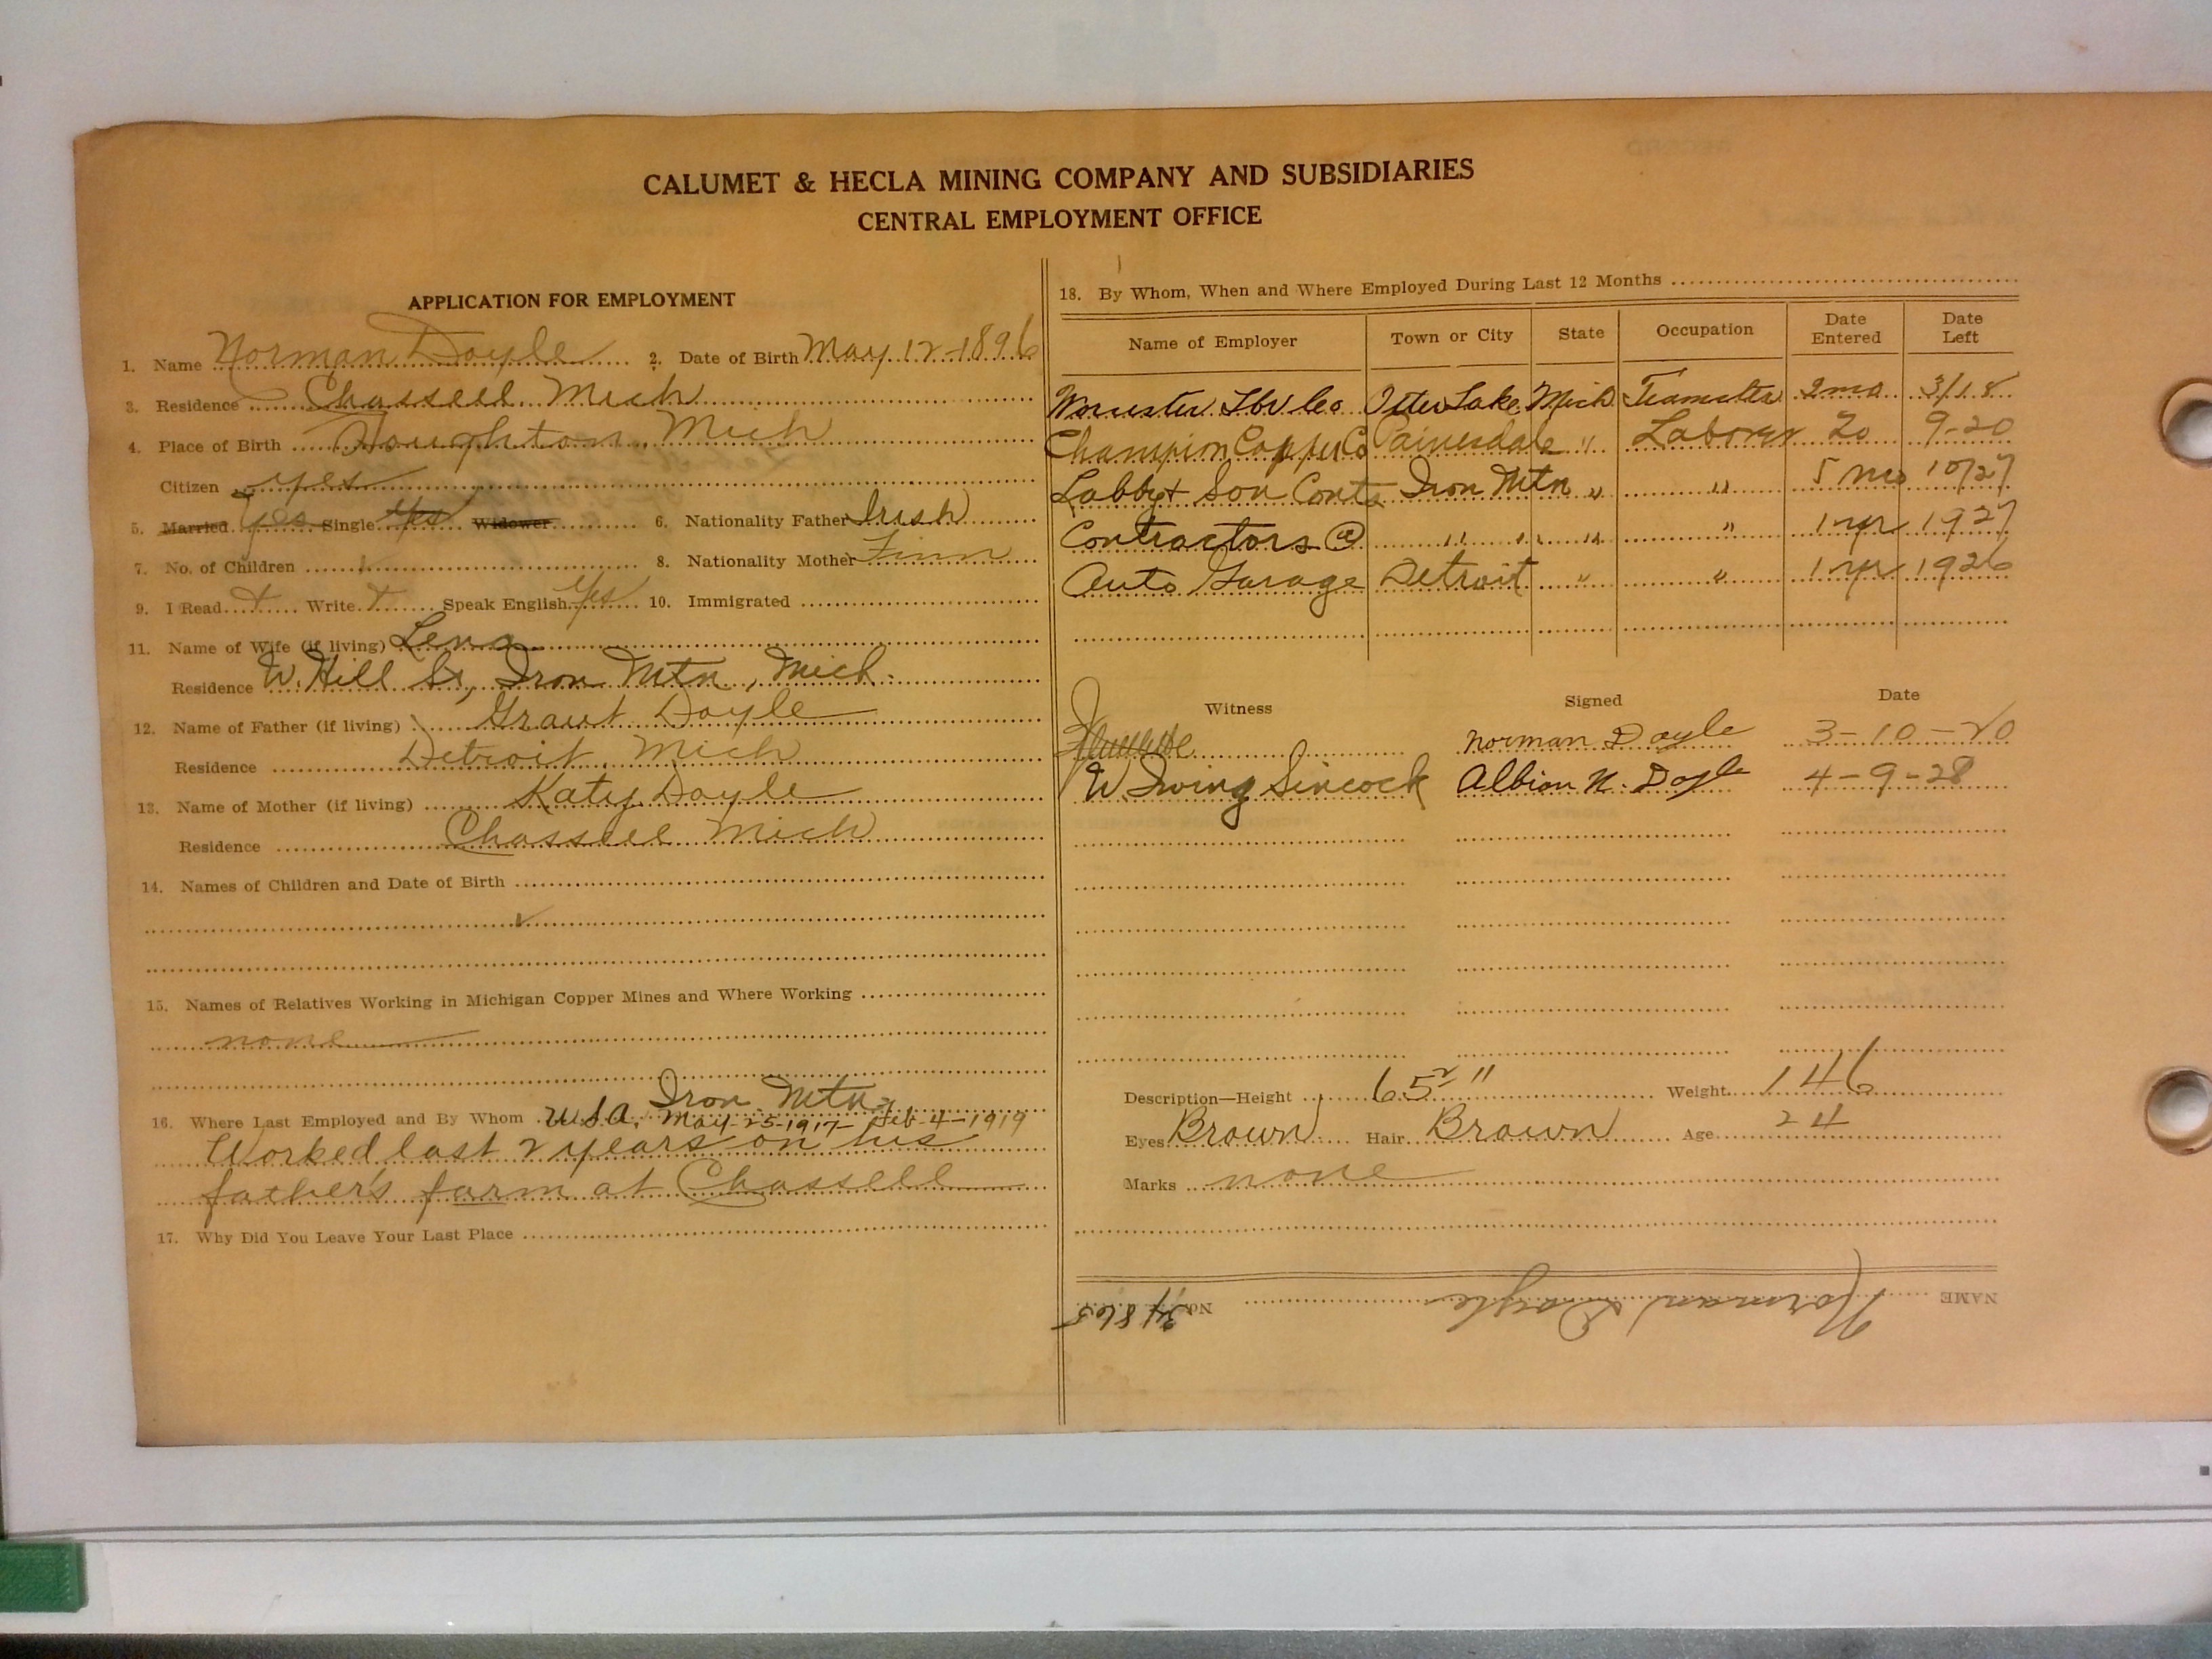 CALUMET & HECLA MINING COMPANY AND SUBSIDIARIES
CENTRAL EMPLOYMENT OFFICE
APPLICATION FOR EMPLOYMENT
1. Name Norman Doyle 2. Date of Birth May 12-1896
3. Residence Chassell Mich
4. Place of Birth Houghton, Mich
Citizen yes
5. Married yes Single yes Widower 6. Nationality Father Irish
7. No. of Children 8. Nationality Mother Finn
9. I Read Write Speak English Yes 10. Immigrated
11. Name of Wife (if living) Lena
Residence W. Hill St, Iron Mtn, Mich.
12. Name of Father (if living) Grant Doyle
Residence Detroit, Mich
13. Name of Mother (if living) Katy Doyle
Residence Chassell Mich
14. Names of Children and Date of Birth
15. Names of Relatives Working in Michigan Copper Mines and Where Working
none
Iron Mtn
16. Where Last Employed and By Whom U.S.A. May-25-1917- Feb-4-1919
Worked last 2 years on his
father's farm at Chassell
17. Why Did You Leave Your Last Place
18. By Whom, When and Where Employed During Last 12 Months
Name of Employer Town or City State Occupation Date Entered Date Left
Worcester Lbr Co Otter Lake Mich Teamster 2 mo 3/1
Champion Copper Co Painesdale " Laborer 20 9-20
Labby & Son Iron Mtn " " 5 mo 10/27
Contractors @ " " " " 1 yr 1927
Auto Garage Detroit " " 1 yr 1926
Witness Signed Date
Norman Doyle 3-10-20
W. Irving Sincock Albion N. Doyle 4-9-28
Description—Height 65 2 " Weight 146
Eyes Brown Hair Brown Age 24
Marks none
NAME Norman Doyle No. 34865